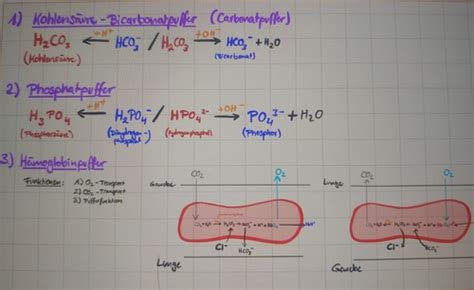 1) Kohlensäure-Bicarbonatpuffer (Carbonatpuffer)
H₂CO₃ ←+H⁺ HCO₃⁻ / H₂CO₃ +OH⁻→ HCO₃⁻ + H₂O
(Kohlensäure) (Bicarbonat)
2) Phosphatpuffer
H₃PO₄ ←+H⁺ H₂PO₄⁻ / HPO₄²⁻ +OH⁻→ PO₄³⁻ + H₂O
(Phosphorsäure) (Dihydrogen-phosphat) (Hydrogenphosphat) (Phosphor)
3) Hämoglobinpuffer
Funktionen: 1) O₂-Transport
2) CO₂-Transport
3) Pufferfunktion
Gewebe CO₂ O₂
Cl⁻ HCO₃⁻
Lunge
Lunge CO₂ O₂
Cl⁻ HCO₃⁻
Gewebe